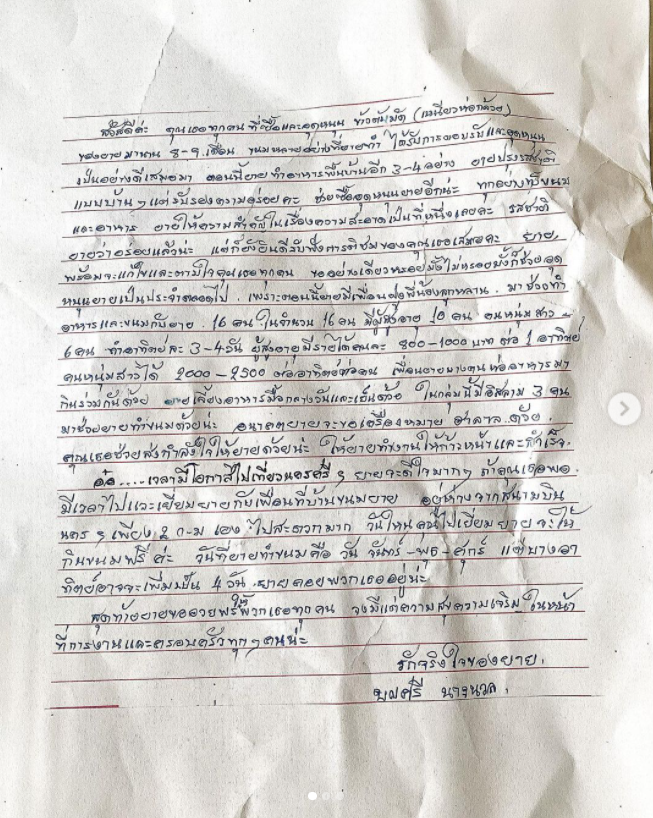 สวัสดีค่ะ คุณเธอทุกคน ที่ซื้อและอุดหนุน ข้าวต้มมัด (เหนียวห่อกล้วย)
ของยายมาตน 8-9 เดือน ขนมหลายอย่างที่ยายทำ ได้รับการตอบรับและอุดหนุน
เป็นอย่างดีเสมอมา ตอนนี้ยายทำอาหารพื้นบ้านอีก 3-4 อย่าง ยายปรุงรสชาติ
แบบบ้านๆ แต่รับรองความอร่อยคะ ช่วยซื้ออุดหนุนยายอีกน่ะ ทุกอย่างที่ขนม
และอาหาร ยายให้ความสำคัญในเรื่องความสะอาดเป็นที่หนึ่งเลยคะ รสชาติ
ยายว่าอร่อยแล้วน่ะ แต่ก็ยังยินดีรับฟังการติชมของคุณเธอเสมอคะ ยาย,
พร้อมจะแก้ไขและตามใจคุณเธอทุกคน ขออย่างเดียวหรอยมั้งไม่หรอยมั้งก็ช่วยอุด
หนุนยายเป็นประจำตลอดไป. เพราะตอนนี้ยายมีเพื่อนฝูงพี่น้องลูกหลาน. มาช่วยทำ
อาหารและขนมกับยาย. 16 คน ในจำนวน 16 คน มีผู้สูงอายุ 10 คน คนหนุ่มสาว -
6 คน ทำอาทิตย์ละ 3-4 วัน ผู้สูงอายุมีรายได้คนละ 800-1000 บาท ต่อ 1 อาทิตย์
คนหนุ่มสาวได้ 2000-2500 ต่ออาทิตย์ต่อคน เพื่อนยายบางคนห่ออาหารมา
กินร่วมกันด้วย ยายเลี้ยงอาหารมื้อกลางวันและเย็นด้วย ในกลุ่มนี้มีอิสลาม 3 คน
มาช่วยยายทำขนมด้วยน่ะ อนาคตยายจะขอเครื่องหมาย ฮาลาล.ด้วย.
คุณเธอช่วยส่งกำลังใจให้ยายด้วยน่ะ ให้ยายทำงานให้ก้าวหน้าและสำเร็จ.
อ้อ.....เวลามีโอกาสไปเที่ยวนครศรีฯ ยายจะดีใจมากๆ ถ้าคุณเธอพอ.
มีเวลาไปแวะเยี่ยมยายกับเพื่อนที่บ้านขนมยาย อยู่ห่างจากสนามบิน
นครฯ เพียง 2 ก-ม เอง ไปสะดวกมาก วันไหนคนไปเยี่ยมยายจะให้
กินขนมฟรีค่ะ วันที่ยายทำขนมคือ วัน จันทร์-พุธ-ศุกร์ แต่บางอา
ทิตย์อาจจะเพิ่มเป็น 4 วัน. ยายคอยพวกเธออยู่น่ะ
สุดท้ายยายขออวยพรให้พวกเธอทุกคน จงมีแต่ความสุขความเจริญ ในหน้า
ที่การงานและครอบครัวทุกๆ คนน่ะ
รักจริงใจของยาย.
นางนวล.